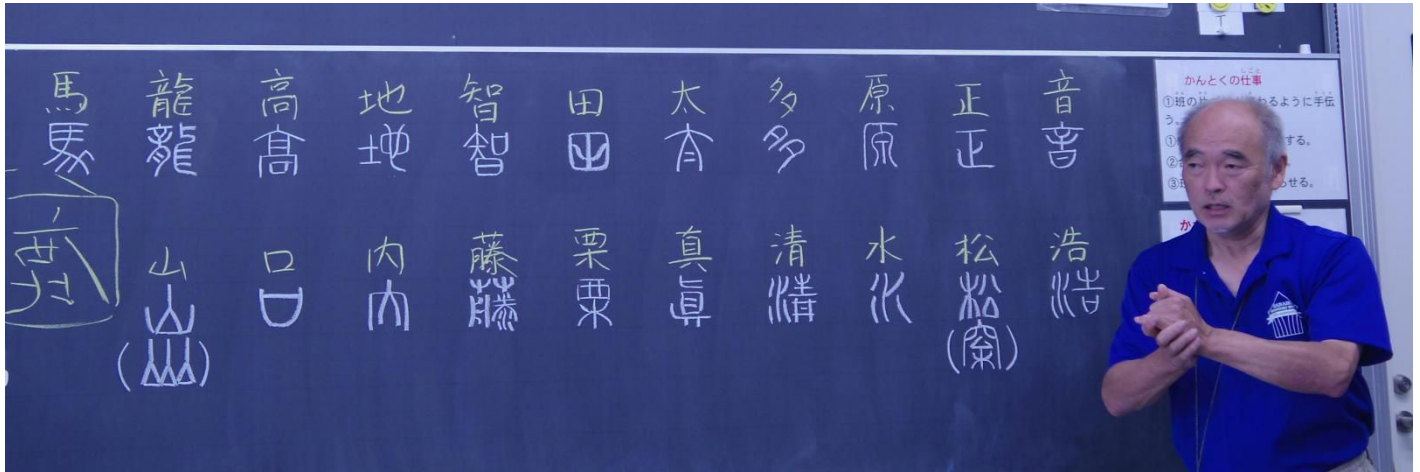 馬 龍 高 地 智 田 太 多 原 正 音
馬 龍 髙 地 智 田 太 多 原 正 音
山 口 内 藤 栗 真 清 水 松 浩
山 口 内 藤 栗 眞 清 水 松 浩
かんとくの仕事
しごと
①班の
るように手伝
う。
①
する。
②
③班
らせる。
か